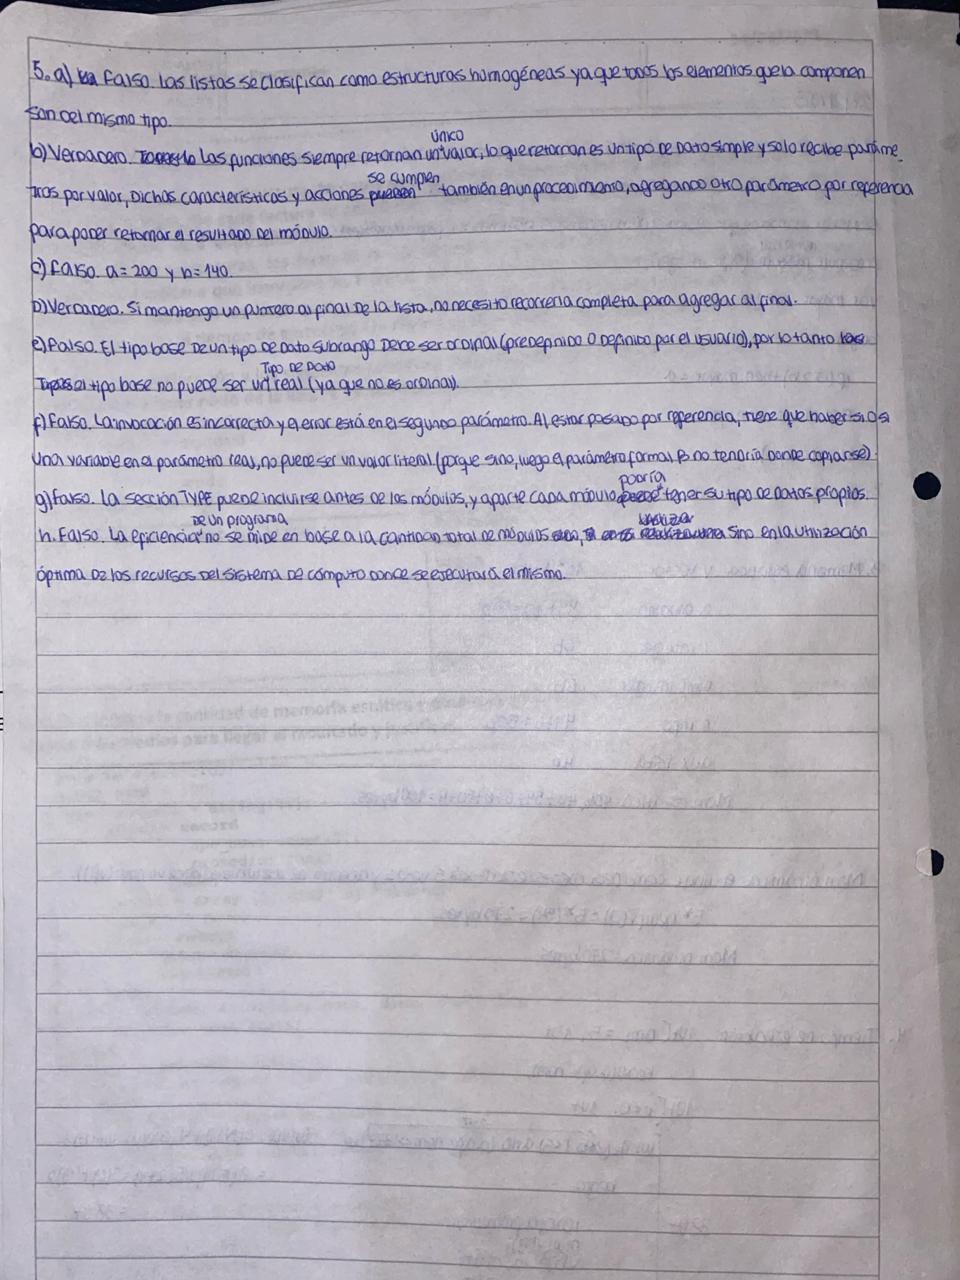 5. a) Falso. Las listas se clasifican como estructuras homogéneas ya que todos los elementos que la componen
son del mismo tipo.
b) Verdadero. Las funciones siempre retornan un único valor, lo que retornan es un tipo de dato simple y solo recibe paráme
tros por valor, Dichas características y acciones se cumplen también en un procedimiento, agregando otro parámetro por referencia
para poder retornar el resultado del módulo.
c) Falso. a=200 y b=140.
D) Verdadero. Si mantengo un puntero al final de la lista, no necesito recorrerla completa para agregar al final.
e) Falso. El tipo base de un tipo de dato subrango debe ser ordinal (predefinido o definido por el usuario), por lo tanto
el tipo base no puede ser un tipo de dato real (ya que no es ordinal).
f) Falso. La invocación es incorrecta y el error está en el segundo parámetro. Al estar pasado por referencia, tiene que haber sí o sí
una variable en el parámetro real, no puede ser un valor literal (porque sino, luego el parámetro formal B no tendría donde copiarse)
g) Falso. La sección TYPE puede incluirse antes de los módulos, y aparte cada módulo podría tener su tipo de datos propios.
h. Falso. La eficiencia de un programa no se mide en base a la cantidad total de módulos sino en la utilización
óptima de los recursos del sistema de cómputo donde se ejecutará el mismo.